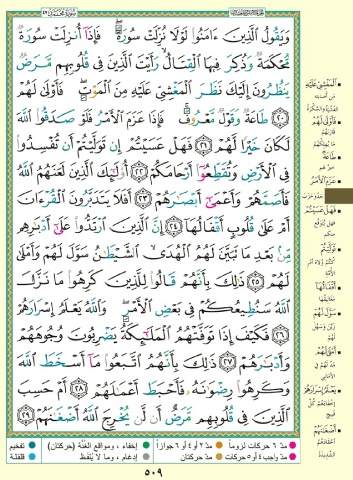 سورة محمد ٤٧
وَيَقُولُ الَّذِينَ ءَامَنُوا لَوْلَا نُزِّلَتْ سُورَةٌ ۖ فَإِذَا أُنزِلَتْ سُورَةٌ
مُّحْكَمَةٌ وَذُكِرَ فِيهَا الْقِتَالُ ۙ رَأَيْتَ الَّذِينَ فِي قُلُوبِهِم مَّرَضٌ
يَنظُرُونَ إِلَيْكَ نَظَرَ الْمَغْشِيِّ عَلَيْهِ مِنَ الْمَوْتِ ۖ فَأَوْلَىٰ لَهُمْ
٢٠ طَاعَةٌ وَقَوْلٌ مَّعْرُوفٌ ۚ فَإِذَا عَزَمَ الْأَمْرُ فَلَوْ صَدَقُوا اللَّهَ
لَكَانَ خَيْرًا لَّهُمْ ٢١ فَهَلْ عَسَيْتُمْ إِن تَوَلَّيْتُمْ أَن تُفْسِدُوا
فِي الْأَرْضِ وَتُقَطِّعُوا أَرْحَامَكُمْ ٢٢ أُولَٰئِكَ الَّذِينَ لَعَنَهُمُ اللَّهُ
فَأَصَمَّهُمْ وَأَعْمَىٰ أَبْصَٰرَهُمْ ٢٣ أَفَلَا يَتَدَبَّرُونَ الْقُرْءَانَ
أَمْ عَلَىٰ قُلُوبٍ أَقْفَالُهَا ٢٤ إِنَّ الَّذِينَ ارْتَدُّوا عَلَىٰ أَدْبَٰرِهِم
مِّن بَعْدِ مَا تَبَيَّنَ لَهُمُ الْهُدَى ۙ الشَّيْطَٰنُ سَوَّلَ لَهُمْ وَأَمْلَىٰ
لَهُمْ ٢٥ ذَٰلِكَ بِأَنَّهُمْ قَالُوا لِلَّذِينَ كَرِهُوا مَا نَزَّلَ
اللَّهُ سَنُطِيعُكُمْ فِي بَعْضِ الْأَمْرِ ۖ وَاللَّهُ يَعْلَمُ إِسْرَارَهُمْ
٢٦ فَكَيْفَ إِذَا تَوَفَّتْهُمُ الْمَلَٰئِكَةُ يَضْرِبُونَ وُجُوهَهُمْ
وَأَدْبَٰرَهُمْ ٢٧ ذَٰلِكَ بِأَنَّهُمُ اتَّبَعُوا مَا أَسْخَطَ اللَّهَ
وَكَرِهُوا رِضْوَٰنَهُ فَأَحْبَطَ أَعْمَٰلَهُمْ ٢٨ أَمْ حَسِبَ
الَّذِينَ فِي قُلُوبِهِم مَّرَضٌ أَن لَّن يُخْرِجَ اللَّهُ أَضْغَٰنَهُمْ ٢٩
المغشي عليه
فأولى لهم
طاعة
عزم الأمر
فهل عسيتم
توليتم
أقفالها
سول لهم
أملى لهم
يعلم إسرارهم
أضغانهم
مدّ ٦ حركات لزوماً مدّ ٢ أو ٤ أو ٦ جوازاً إخفاء، ومواقع الغنّة (حركتان) تفخيم
مدّ واجب ٤ أو ٥ حركات مدّ حركتان إدغام، وما لا يُلفظ قلقلة
٥٠٩